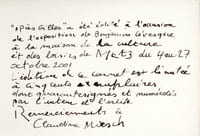 a été édité à l'occasion
de l'exposition de
à la maison de la culture
et des loisirs de Metz du 4 au 27
octobre 2001
L'édition de ce carnet est limitée
à cinq cents exemplaires
dont quarante signés et numérotés
par l'auteur et l'artiste
Remerciements à
Claudine Miesch